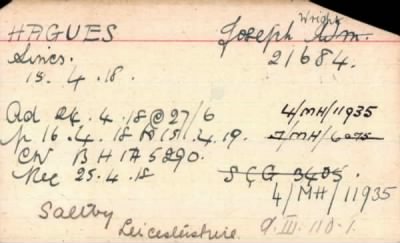 HAGUES Joseph Wright Wm.
Lincs. 21684.
15.4.18.
Ad 24.4.18 @ 27/6 4/MH/11935
16.4.18 to 15.4.19. 7/MH/6275
CN BH 1A 5290.
Rec 25.4.18 SCG 3405
4/MH/11935
Saltby
Leicestershire. 9.III.110.1.